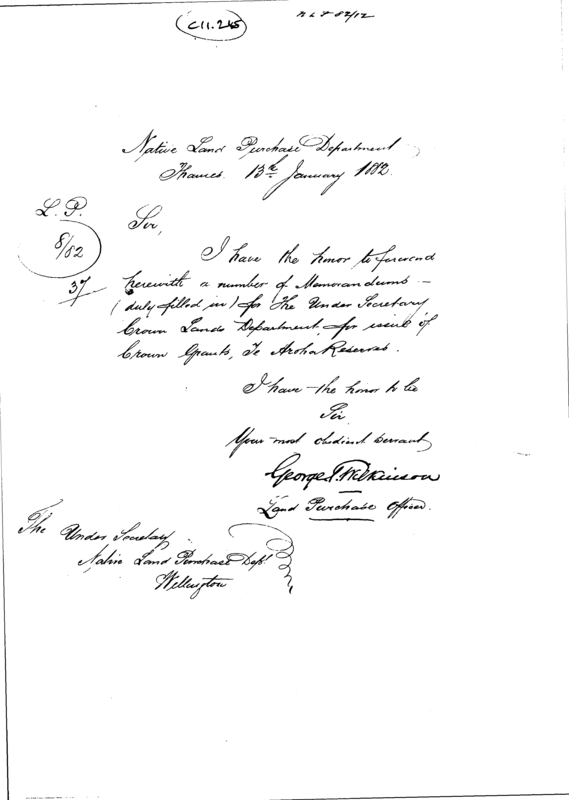 C11.245
N L P 82/12
Native Land Purchase Department
Thames 13th January 1882.
L. P.
8/82
37
Sir,
I have the honor to forward
herewith a number of Memorandums -
(duly filled in) for the Under Secretary
Crown Lands Department, for issue of
Crown Grants, Te Aroha Reserves.
I have the honor to be
Sir
Your most obedient servant,
George T. Wilkinson
Land Purchase Officer.
The Under Secretary
Native Land Purchase Dept.
Wellington